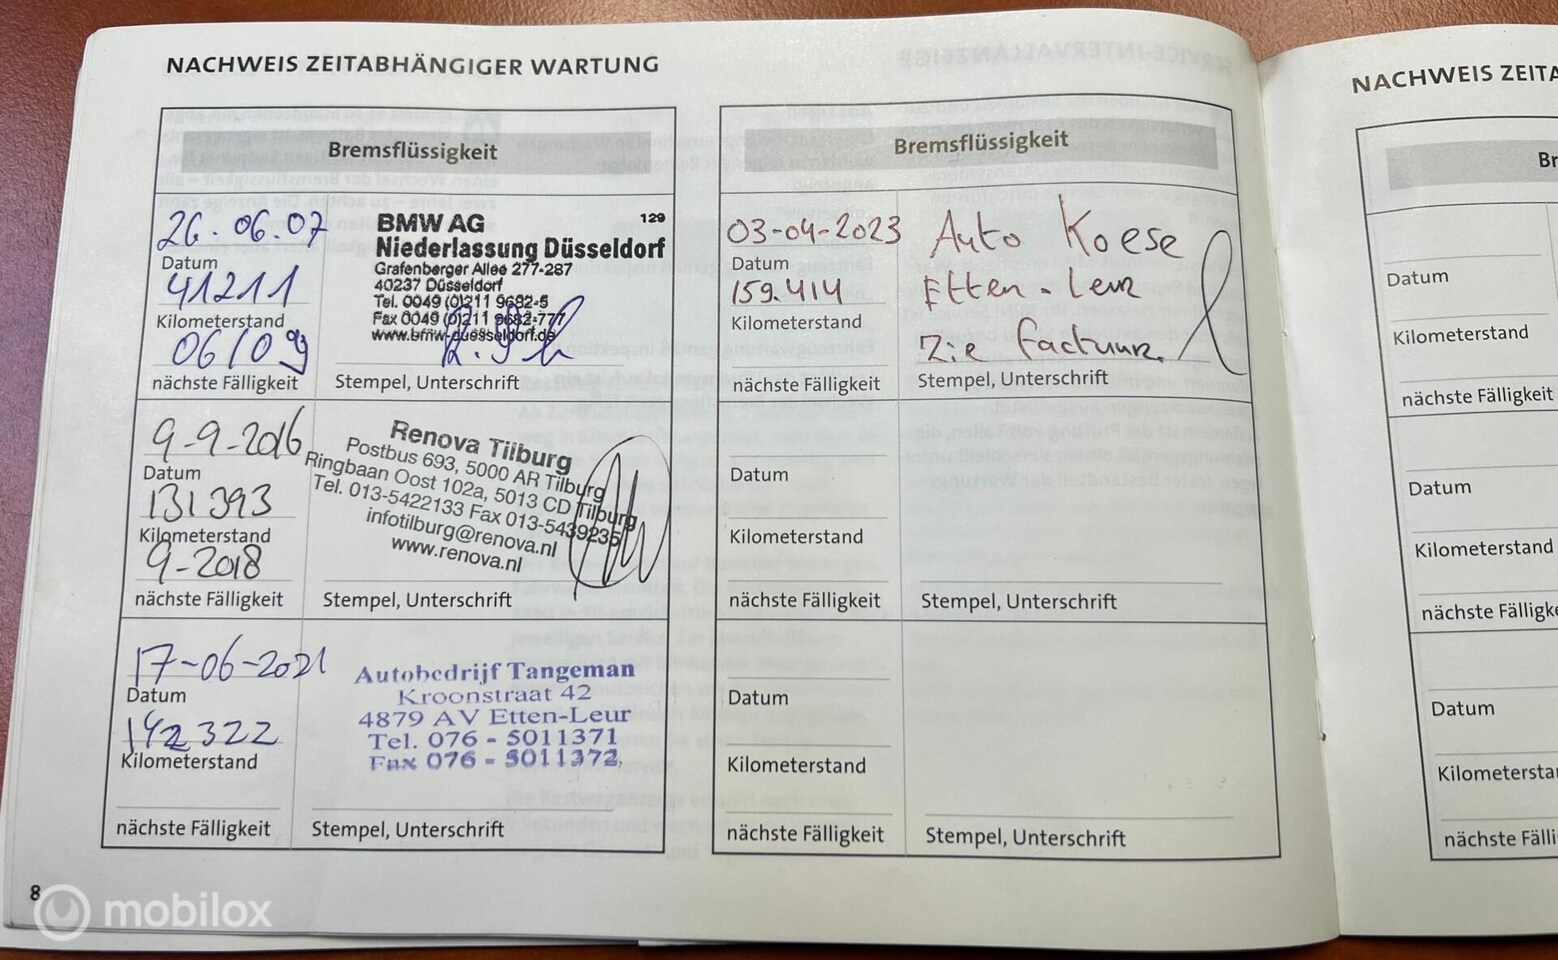 NACHWEIS ZEITABHÄNGIGER WARTUNG
Bremsflüssigkeit
26.06.07
Datum
41211
Kilometerstand
06/09
nächste Fälligkeit
BMW AG 129
Niederlassung Düsseldorf
Grafenberger Allee 277-287
40237 Düsseldorf
Tel. 0049 (0)211 9682-5
Fax 0049 (0)211 9682-777
www.bmw-duesseldorf.de
Stempel, Unterschrift
9-9-2016
Datum
131393
Kilometerstand
9-2018
nächste Fälligkeit
Renova Tilburg
Postbus 693, 5000 AR Tilburg
Ringbaan Oost 102a, 5013 CD Tilburg
Tel. 013-5422133 Fax 013-5439235
infotilburg@renova.nl
www.renova.nl
Stempel, Unterschrift
17-06-2021
Datum
142322
Kilometerstand
nächste Fälligkeit
Autobedrijf Tangeman
Kroonstraat 42
4879 AV Etten-Leur
Tel. 076 - 5011371
Fax 076 - 5011372,
Stempel, Unterschrift
Bremsflüssigkeit
03-04-2023
Datum
159.414
Kilometerstand
nächste Fälligkeit
Auto Koese
Etten-Leur
Zie factuur.
Stempel, Unterschrift
Datum
Kilometerstand
nächste Fälligkeit
Stempel, Unterschrift
Datum
Kilometerstand
nächste Fälligkeit
Stempel, Unterschrift
8
mobilox
NACHWEIS ZEITA
Br
Datum
Kilometerstand
nächste Fälligkeit
Datum
Kilometerstand
nächste Fälligke
Datum
Kilometersta
nächste Fälli